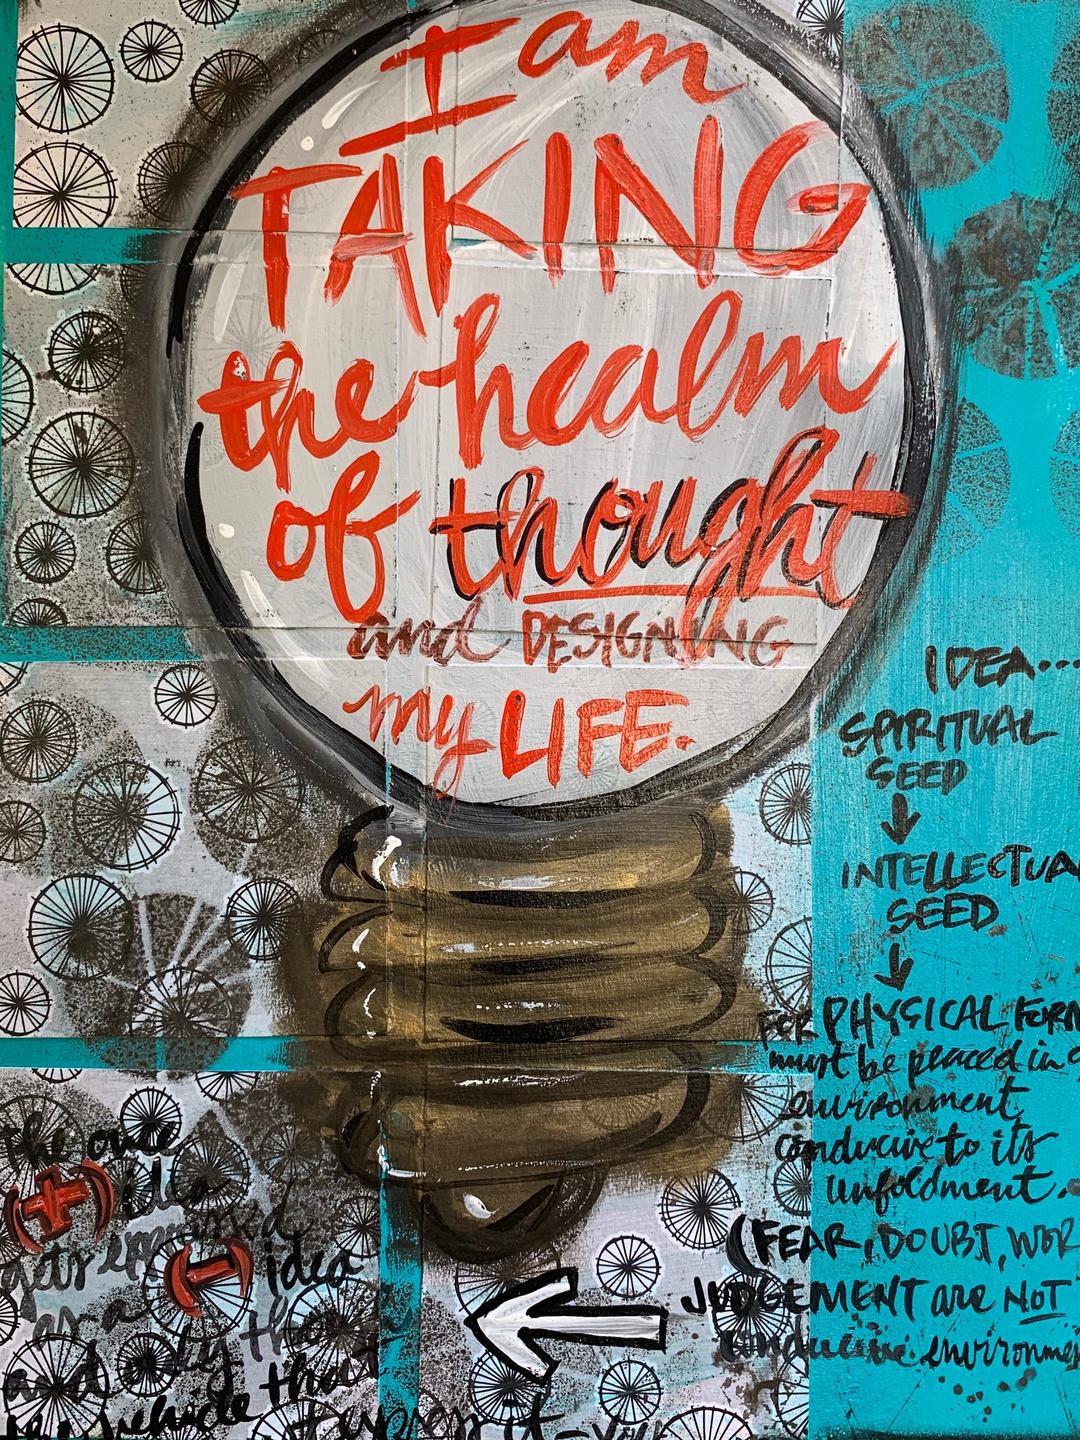 I am
TAKING
the healm
of thought
and DESIGNING
my LIFE.
IDEA...
SPIRITUAL
SEED
↓
INTELLECTUA
SEED
↓
FOR PHYSICAL FORM
must be placed in a
environment
conducive to its
unfoldment.
(FEAR, DOUBT, WOR
JUDGEMENT are NOT
conducive environme
the once
(+) idea
gets expressed
as a (-) idea
and only tho
the vehicle that
it - you